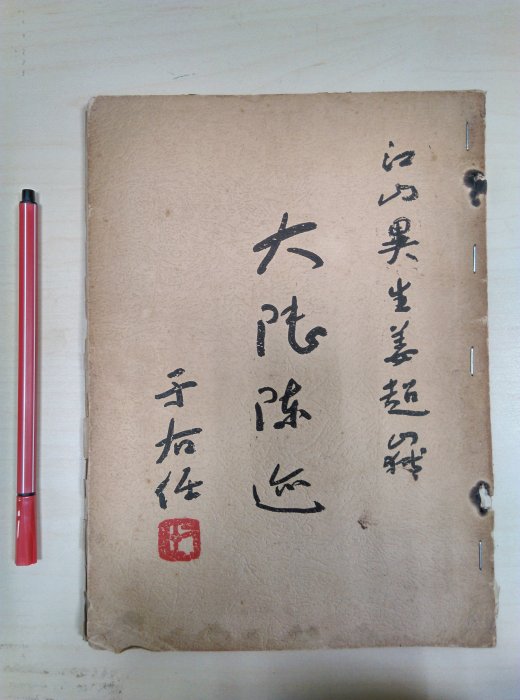 江山異生姜超嶽
大陸陳迹
于右任